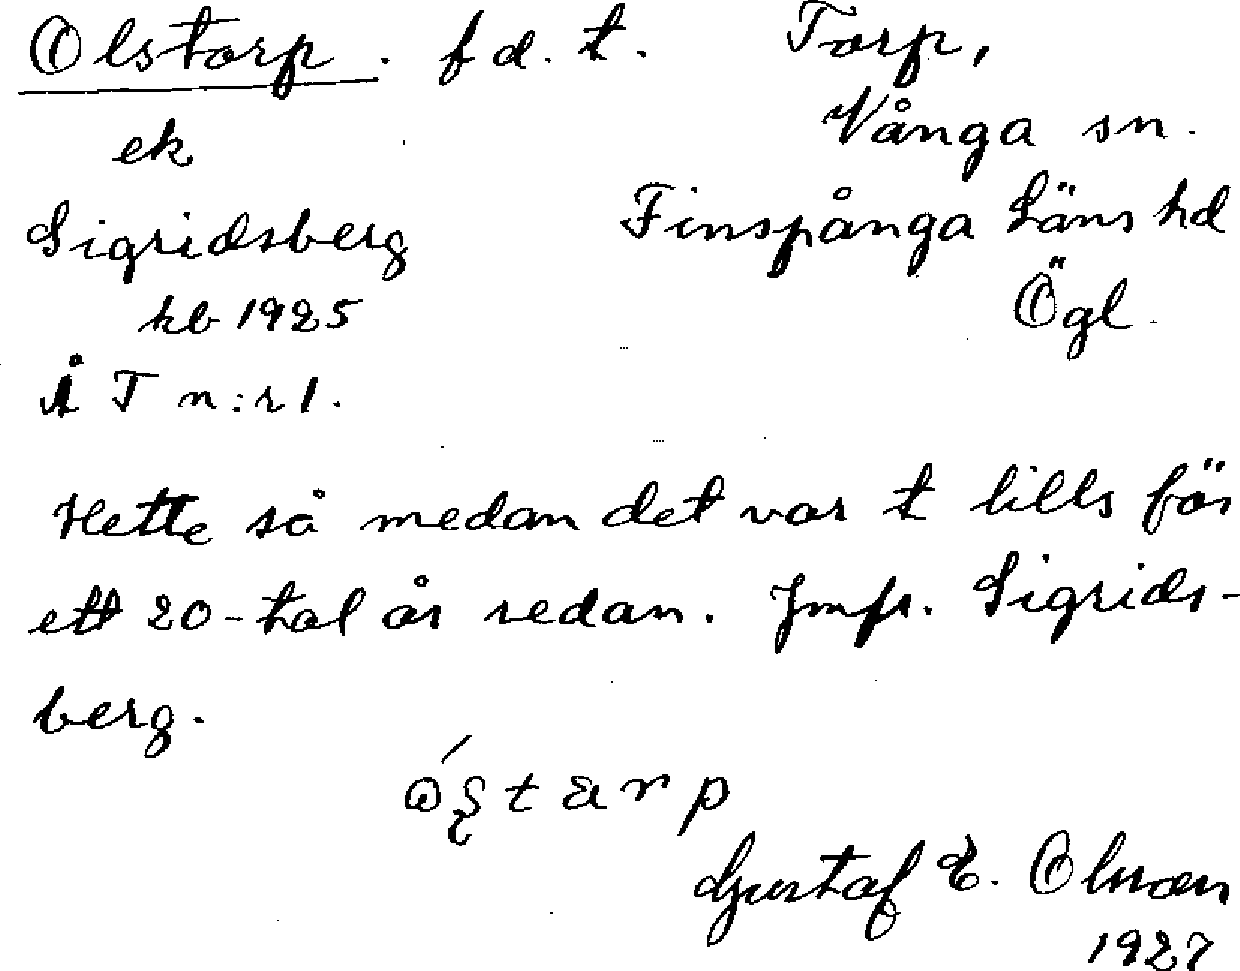 Olstorp. fd. t. Torp,
Vånga sn.
ek
Sigridsberg Finspånga Läns hd
kb 1925 Ögl.
Å T n:r 1.
Hette så medan det var t tills för
ett 20-tal år sedan. Jmfr. Sigrids-
berg.
Gustaf E. Olsson
1927